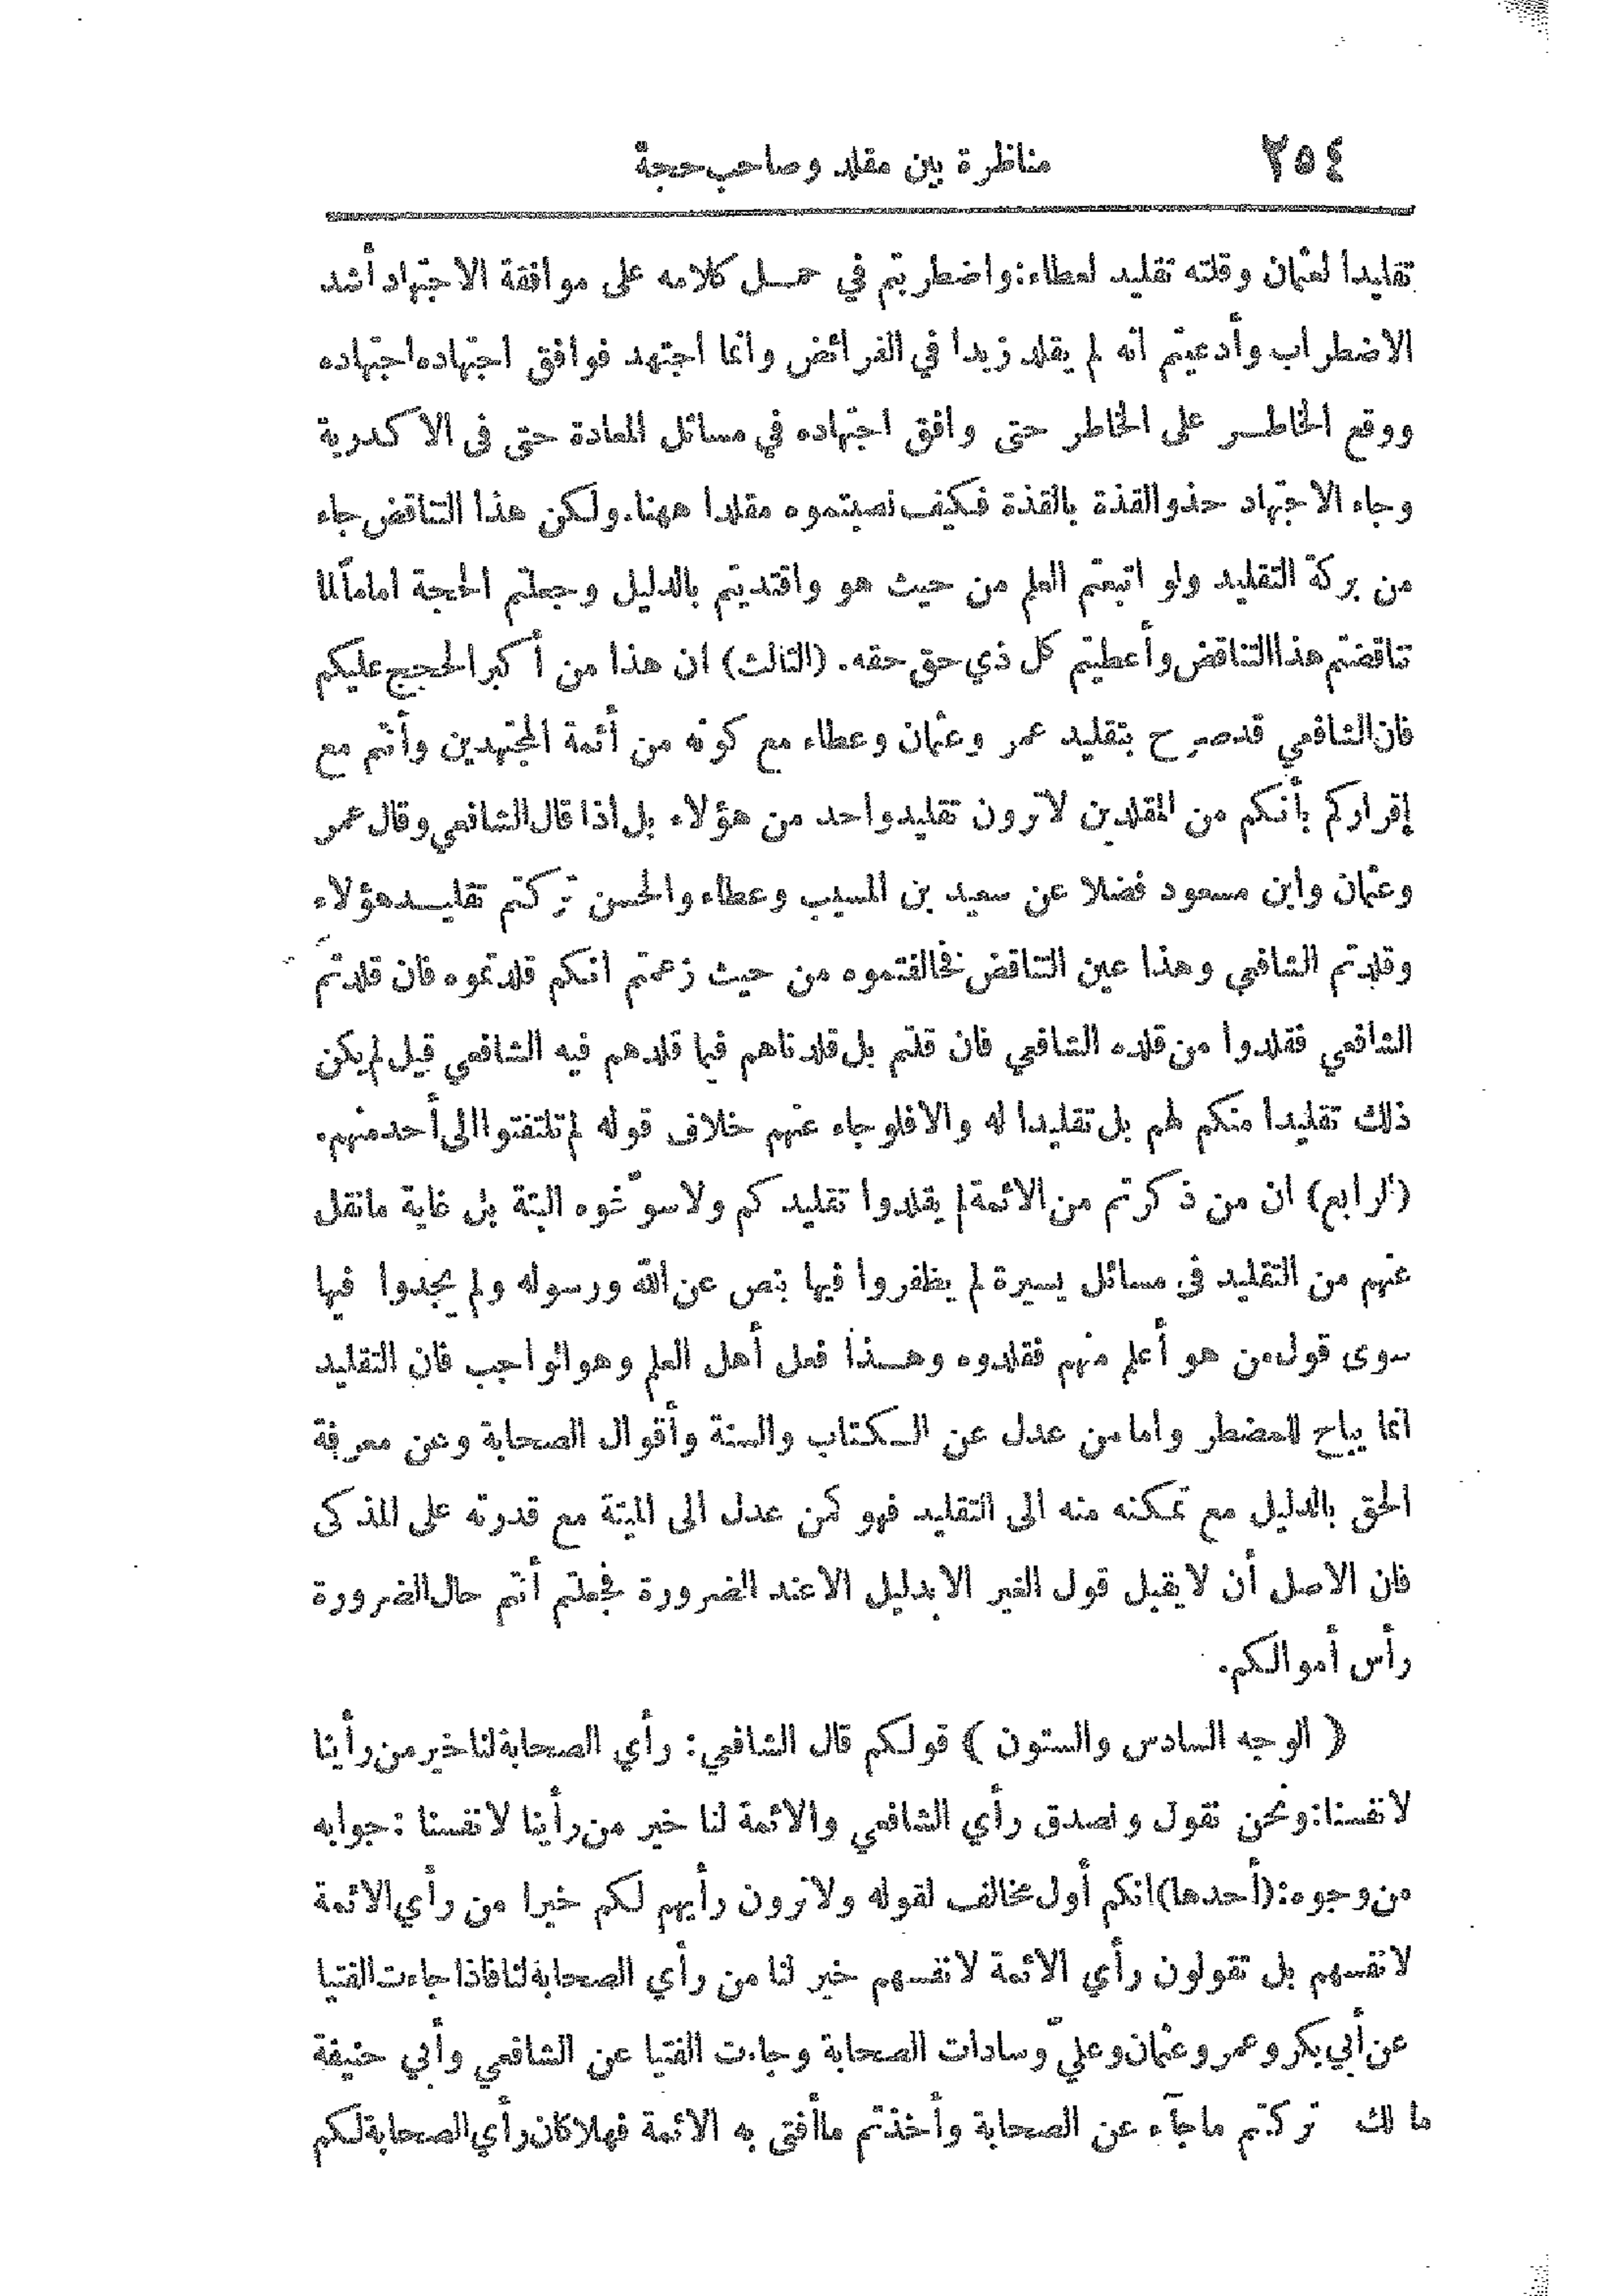 ٢٥٤ مناظرة بين مقلد وصاحب حجة
تقليدا لعثمان وقلته تقليد لعطاء: واضطربتم في حمل كلامه على موافقة الاجتهاد أشد
الاضطراب وأدعيتم أنه لم يقلد زيدا في الفرائض وانما اجتهد فوافق اجتهاده اجتهاده
ووقع الخاطر على الخاطر حتى وافق اجتهاده في مسائل المعادة حتى فى الاكدرية
وجاء الاجتهاد حذو القذة بالقذة فكيف نصبتموه مقلدا ههنا. ولكن هذا التناقض جاء
من بركة التقليد ولو اتبعتم العلم من حيث هو واقتديتم بالدليل وجعلتم الحجة اماماً لما
تناقضتم هذا التناقض وأعطيتم كل ذي حق حقه. (الثالث) ان هذا من أكبر الحجج عليكم
فان الشافعي قد صرح بتقليد عمر وعثمان وعطاء مع كونه من أئمة المجتهدين وأنتم مع
إقراركم بأنكم من المقلدين لا ترون تقليد واحد من هؤلاء بل اذا قال الشافعي وقال عمر
وعثمان وابن مسعود فضلا عن سعيد بن المسيب وعطاء والحسن تركتم تقليد هؤلاء
وقلدتم الشافعي وهذا عين التناقض فخالفتموه من حيث زعمتم انكم قلدتموه فان قلدتم
الشافعي فقلدوا من قلده الشافعي فان قلتم بل قلدناهم فيما قلدهم فيه الشافعي قيل لم يكن
ذلك تقليدا منكم لهم بل تقليدا له والا فلو جاء عنهم خلاف قوله لم تلتفتوا الى أحد منهم.
(الرابع) ان من ذكرتم من الائمة لم يقلدوا تقليدكم ولا سوّغوه البتة بل غاية ما نقل
عنهم من التقليد فى مسائل يسيرة لم يظفروا فيها بنص عن الله ورسوله ولم يجدوا فيها
سوى قول من هو أعلم منهم فقلدوه وهذا فعل أهل العلم وهو الواجب فان التقليد
انما يباح للمضطر وأما من عدل عن الكتاب والسنة وأقوال الصحابة وعن معرفة
الحق بالدليل مع تمكنه منه الى التقليد فهو كمن عدل الى الميتة مع قدرته على المذكى
فان الاصل أن لا يقبل قول الغير الا بدليل الا عند الضرورة فجعلتم أنتم حال الضرورة
رأس أموالكم.
( الوجه السادس والستون ) قولكم قال الشافعي: رأي الصحابة لنا خير من رأينا
لانفسنا: ونحن نقول ونصدق رأي الشافعي والائمة لنا خير من رأينا لانفسنا: جوابه
من وجوه: (أحدها) انكم أول مخالف لقوله ولا ترون رأيهم لكم خيرا من رأي الائمة
لانفسهم بل تقولون رأي الائمة لانفسهم خير لنا من رأي الصحابة لنا فاذا جاءت الفتيا
عن أبي بكر وعمر وعثمان وعليّ وسادات الصحابة وجاءت الفتيا عن الشافعي وأبي حنيفة
مالك تركتم ما جآء عن الصحابة وأخذتم ما أفتى به الائمة فهلا كان رأي الصحابة لكم